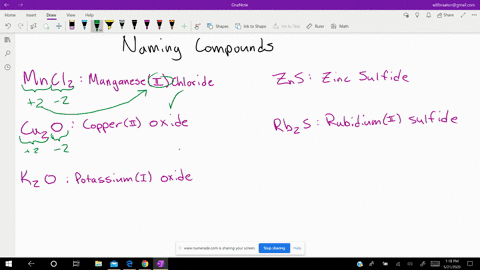 OneNote
willisnaaliori@gmail.com
Shapes
Ink to Shape
Ink to Text
Ink to Math
Ruler
Math
Naming Compounds
MnCl2 : Manganese(II) Chloride
+2 -2
Cu2O : Copper(II) oxide
+2 -2
K2O : Potassium(I) oxide
ZnS : Zinc Sulfide
Rb2S : Rubidium(I) sulfide
www.numerade.com is sharing your screen.
Stop sharing
Hide
1:18 PM
5/21/2020